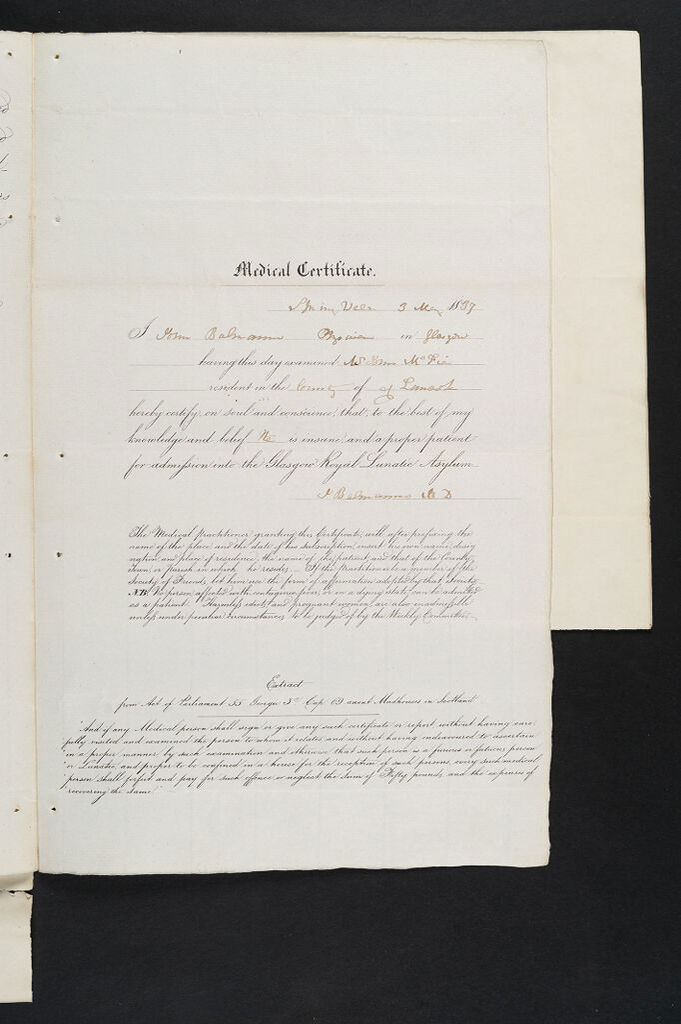 Medical Certificate.
3 May 1837
I John Balmanno Physician in Glasgow
having this day examined Wm McFie
resident in the County of of Lanark
hereby certify, on soul and conscience, that, to the best of my
knowledge and belief He is insane, and a proper patient
for admission into the Glasgow Royal Lunatic Asylum.
J Balmanno M D
The Medical Practitioner granting this Certificate, will, after prefixing the
name of the place and the date of his subscription, insert his own name, desig
nation, and place of residence; the name of the patient, and that of the County,
Town, or Parish in which he resides. If the Practitioner be a member of the
Society of Friends, let him use the form of affirmation adopted by that Society.
N.B. No person affected with contagious fever, or in a dying state, can be admitted
as a patient. Harmless idiots, and pregnant women, are also inadmissible
unless under peculiar circumstances, to be judged of by the Weekly Committee.
Extract
from Act of Parliament 55 George 3d Cap 69 anent Madhouses in Scotland
"And if any Medical person shall sign or give any such certificate or report without having care-
"fully visited and examined the person to whom it relates and without having endeavoured to ascertain
"in a proper manner by such examination and otherwise that such person is a furious or fatuous person
"or Lunatic, and proper to be confined in a house for the reception of such persons, every such medical
"person shall forfeit and pay for such offence or neglect the sum of Fifty pounds and the expenses of
"recovering the same"